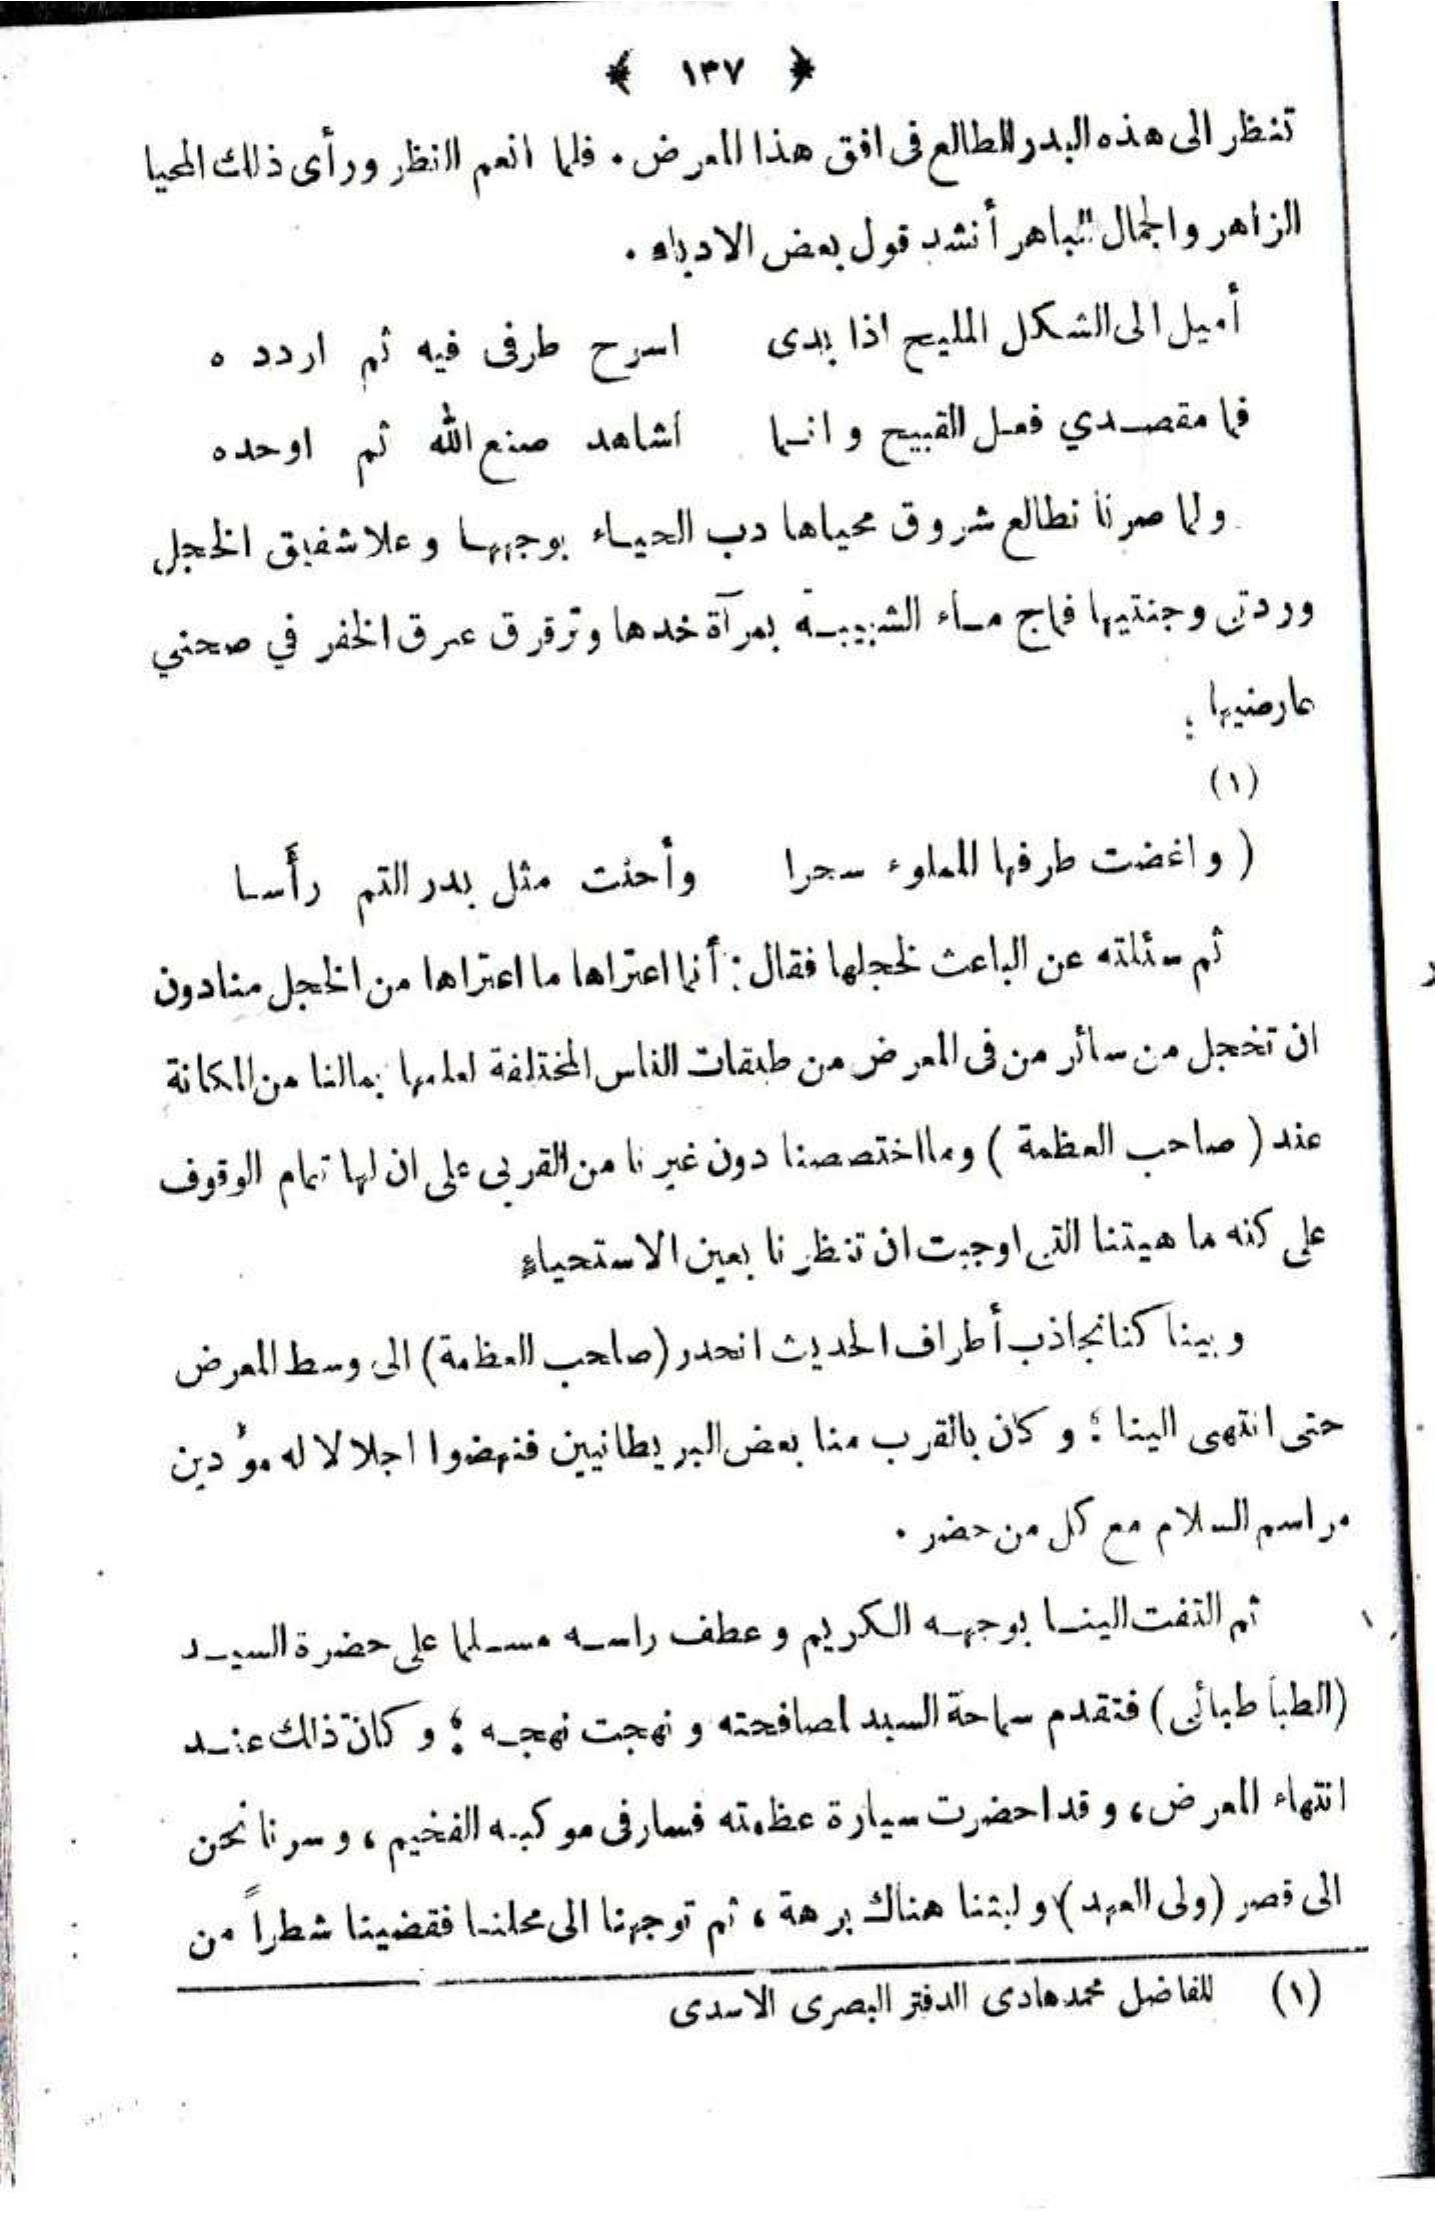 ﴿ ١٣٧ ﴾
تنظر الى هذه البدر الطالع فى افق هذا المعرض . فلما انعم النظر ورأى ذلك المحيا
الزاهر والجمال الباهر أنشد قول بعض الادباء .
أميل الى الشكل المليح اذا بدى اسرح طرفى فيه ثم اردده
فما مقصدي فعل القبيح وانما أشاهد صنع الله ثم اوحده
ولما صرنا نطالع شروق محياها دب الحياء بوجهها وعلا شفيق الخجل
وردتى وجنتيها فماج ماء الشبيبة بمرآة خدها وترقرق عرق الخفر في صحني
عارضيها ؛
(١)
( واغضت طرفها المملوء سحرا وأحنت مثل بدر التم رأسا
ثم سئلته عن الباعث لخجلها فقال : أنما اعتراها ما اعتراها من الخجل منادون
ان تخجل من سائر من فى المعرض من طبقات الناس المختلفة لعلمها بمالنا من المكانة
عند ( صاحب العظمة ) وما اختصصنا دون غيرنا من القربى على ان لها تمام الوقوف
على كنه ما هيتنا التى اوجبت ان تنظرنا بعين الاستحياء
وبينا كنا نجاذب أطراف الحديث انحدر (صاحب العظمة) الى وسط المعرض
حتى انتهى الينا ؛ وكان بالقرب منا بعض البريطانيين فنهضوا اجلالا له مؤدين
مراسم السلام مع كل من حضر .
ثم التفت الينا بوجهه الكريم وعطف راسه مسلما على حضرة السيد
(الطبا طبائى) فتقدم سماحة السيد لصافحته ونهجت نهجه ؛ وكان ذلك عند
انتهاء المعرض، وقد احضرت سيارة عظمته فسار فى موكبه الفخيم ، وسرنا نحن
الى قصر (ولى العهد) ولبثنا هناك برهة ، ثم توجهنا الى محلنا فقضينا شطراً من
(١) للفاضل محمد هادى الدفتر البصرى الاسدى